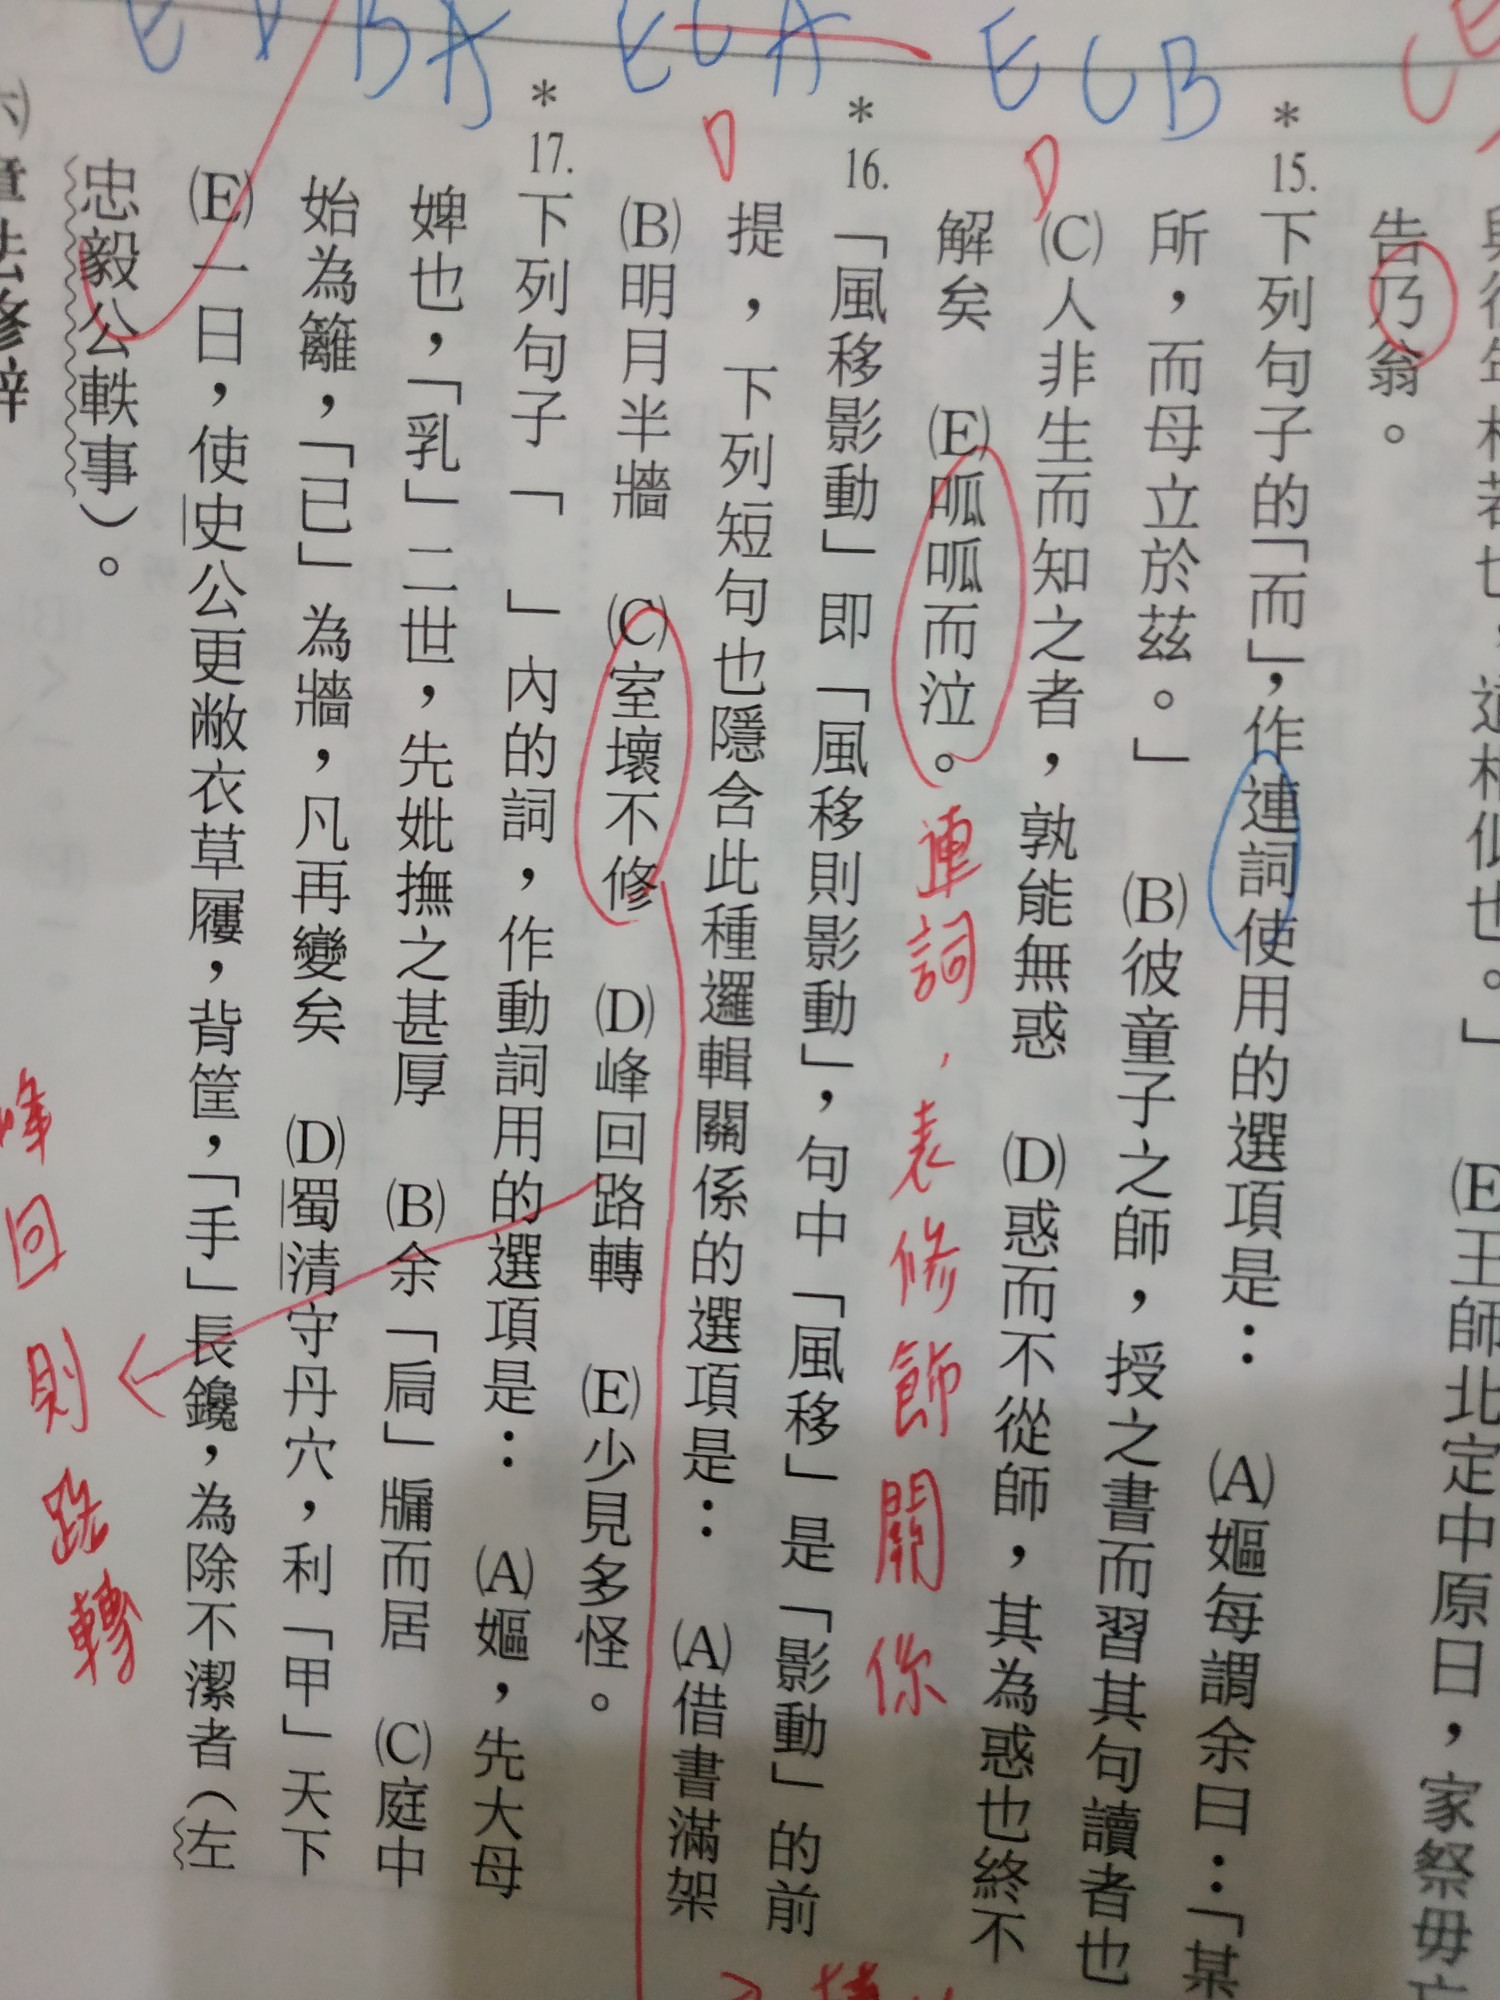 E
BA
ECA
ECB
CE
相若也,道相似也。」 (E)王師北定中原日,家祭毋
告乃翁。
*15.下列句子的「而」,作連詞使用的選項是: (A)嫗每謂余曰:「某
所,而母立於茲。」 (B)彼童子之師,授之書而習其句讀者也
D
(C)人非生而知之者,孰能無惑 (D)惑而不從師,其為惑也終不
解矣 (E)呱呱而泣。
連詞,表修飾關係
*16.「風移影動」即「風移則影動」,句中「風移」是「影動」的前
D
提,下列短句也隱含此種邏輯關係的選項是: (A)借書滿架
(B)明月半牆 (C)室壞不修 (D)峰回路轉 (E)少見多怪。
*17.下列句子「 」內的詞,作動詞用的選項是: (A)嫗,先大母
婢也,「乳」二世,先妣撫之甚厚 (B)余「扃」牖而居 (C)庭中
始為籬,「已」為牆,凡再變矣 (D)蜀清守丹穴,利「甲」天下
(E)一日,使史公更敝衣草屨,背筐,「手」長鑱,為除不潔者(左
忠毅公軼事)。
峰回則路轉
章法修辭